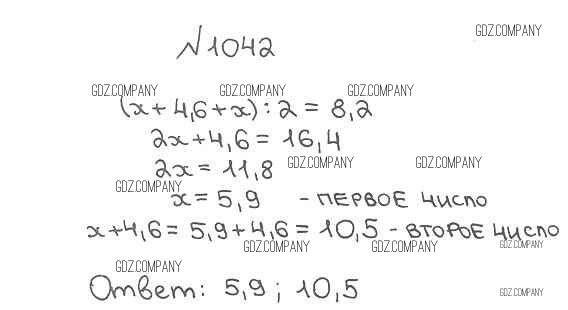 GDZ.COMPANY
№1042
GDZ.COMPANY GDZ.COMPANY GDZ.COMPANY
(x + 4,6 + x) : 2 = 8,2
2x + 4,6 = 16,4
2x = 11,8
GDZ.COMPANY GDZ.COMPANY
GDZ.COMPANY
x = 5,9 - ПЕРВОЕ ЧИСЛО
x + 4,6 = 5,9 + 4,6 = 10,5 - ВТОРОЕ ЧИСЛО
GDZ.COMPANY GDZ.COMPANY GDZ.COMPANY
GDZ.COMPANY
Ответ: 5,9 ; 10,5
GDZ.COMPANY